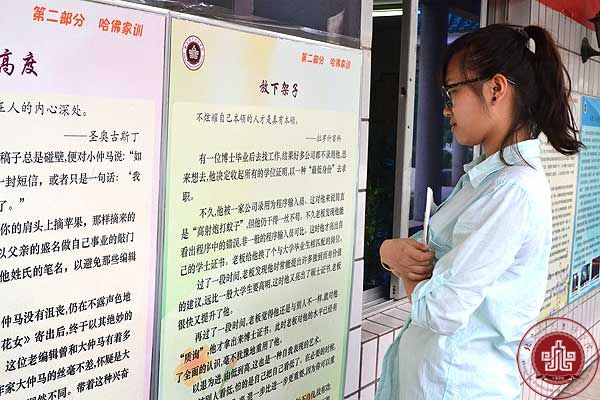 第二部分 哈佛家训
高度
在人的内心深处。
——圣奥古斯丁
稿子总是碰壁,便对小仲马说:“如
一封短信,或者只是一句话:‘我
了。”
你的肩头上摘苹果,那样摘来的
以父亲的盛名做自己事业的敲门
他姓氏的笔名,以避免那些编辑
仲马没有沮丧,仍在不露声色地
花女》寄出后,终于以其绝妙的
这位老编辑曾和大仲马有着多
作家大仲马的丝毫不差,怀疑是大
然不同。带着这种兴奋
第二部分 哈佛家训
放下架子
不炫耀自己本领的人才是真有本领。
——拉罗什富科
有一位博士毕业后去找工作,结果好多公司都不录用他,思
来想去,他决定收起所有的学位证明,以一种“最低身份”去求
职。
不久,他被一家公司录用为程序输入员。这对他来说简直
是“高射炮打蚊子”,但他仍干得一丝不苟。不久老板发现他能
看出程序中的错误,非一般的程序输入员可比。这时他才亮出自
己的学士证书。老板给他换了个与大学毕业生相匹配的岗位。
过了一段时间,老板发现他时常能提出许多独到而有价值
的建议,远比一般大学生要高明,这时他又亮出了硕士证书,老板
很快又提升了他。
再过了一段时间,老板觉得他还是与别人不一样,就对他
“质询”,他才拿出来博士证书。此时老板对他的水平已经有
了全面的认识,毫不犹豫地重用了他。
以退为进,由低到高,这也是一种自我表现的艺术。